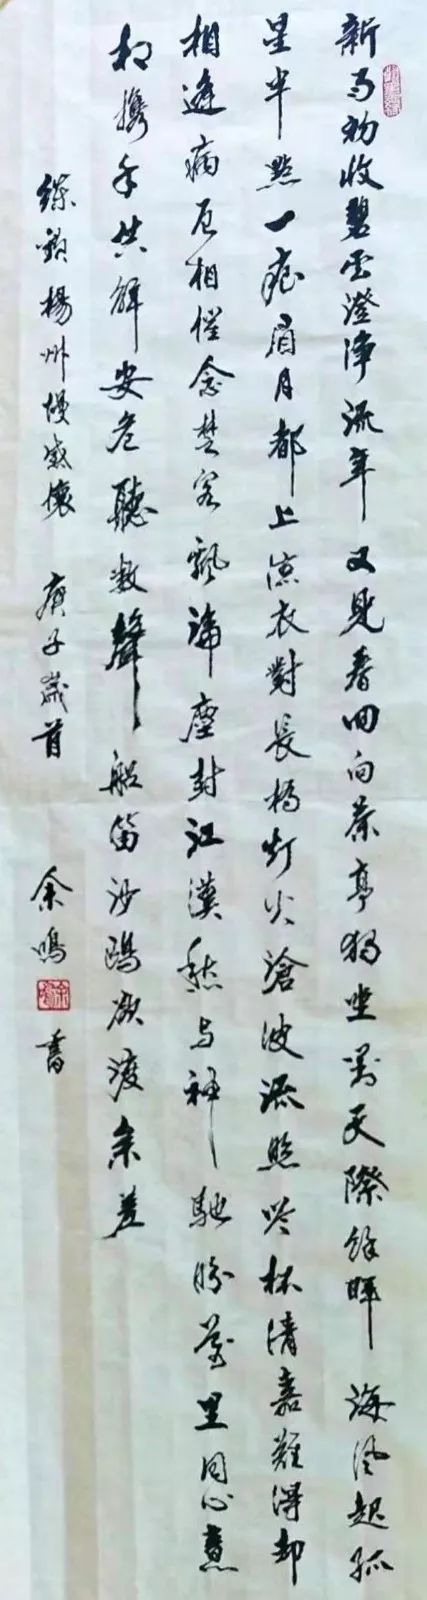 新雨初收碧雲澄净流年又見春回向茶亭獨坐對天際餘暉海風起孤
星半點一痕眉月都上凉衣對長橋灯火滄波流照吟杯清嘉難得却
相逢病后相催念楚客飄淪塵封江漢愁与神馳盼萬里同心意
相攜手共解安危聽數聲船笛沙鷗欲渡参差
緑韻楊州慢感懷 庚子歲首 余鳴 書